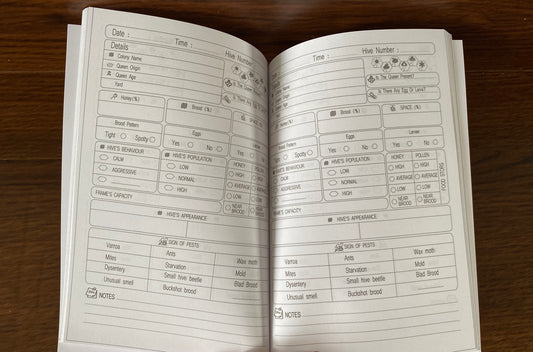 Date :
Time :
Hive Number
Details
Colony Name
Queen Origin
Queen Age
Yard
Is The Queen
Is There Any
Honey(%)
Brood (%)
SPACE (%)
Brood Pattern
Tight
Spotty
Eggs
Yes
No
HIVE'S BEHAVIOUR
CALM
AGGRESSIVE
HIVE'S POPULATION
LOW
NORMAL
HIGH
HONEY
HIGH
AVERAGE
LOW
NEAR BROOD
FRAME'S CAPACITY
HIVE'S APPEARANCE
SIGN OF PESTS
Varroa
Ants
Wax moth
Mites
Starvation
Mold
Dysentery
Small hive beetle
Blad Brood
Unusual smell
Buckshot brood
NOTES
Time :
Hive Number :
Name
Is The Queen Present?
Is There Any Egg Or Larva?
Honey(%)
Brood (%)
SPACE (%)
Brood Pattern
Tight
Spotty
Eggs
Yes
No
Larvae
Yes
No
HIVE'S BEHAVIOUR
CALM
AGGRESSIVE
HIVE'S POPULATION
LOW
NORMAL
HIGH
HONEY
POLLEN
HIGH
HIGH
AVERAGE
AVERAGE
LOW
LOW
NEAR BROOD
NEAR BROOD
FOOD STORG
FRAME'S CAPACITY
HIVE'S APPEARANCE
SIGN OF PESTS
Varroa
Ants
Wax moth
Mites
Starvation
Mold
Dysentery
Small hive beetle
Blad Brood
Unusual smell
Buckshot brood
NOTES